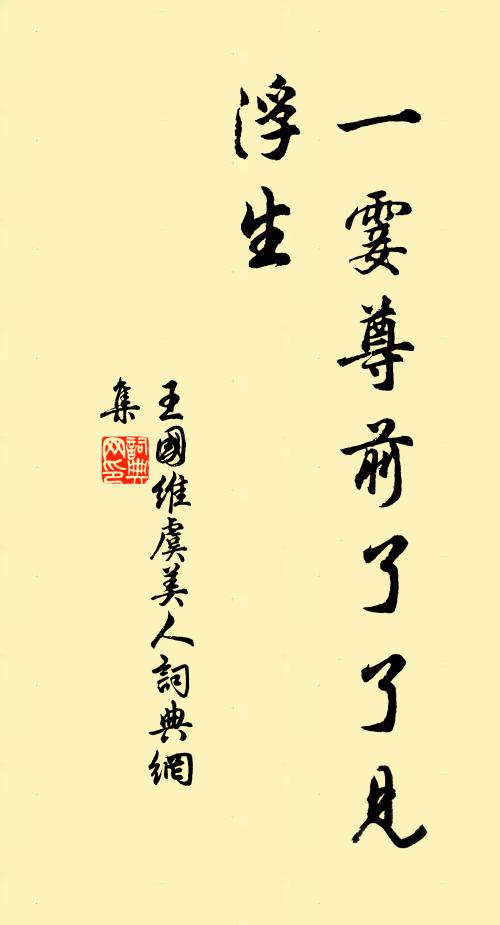 一霎尊前了了見
浮生
王國維虞美人詞典網
集
詞典網印